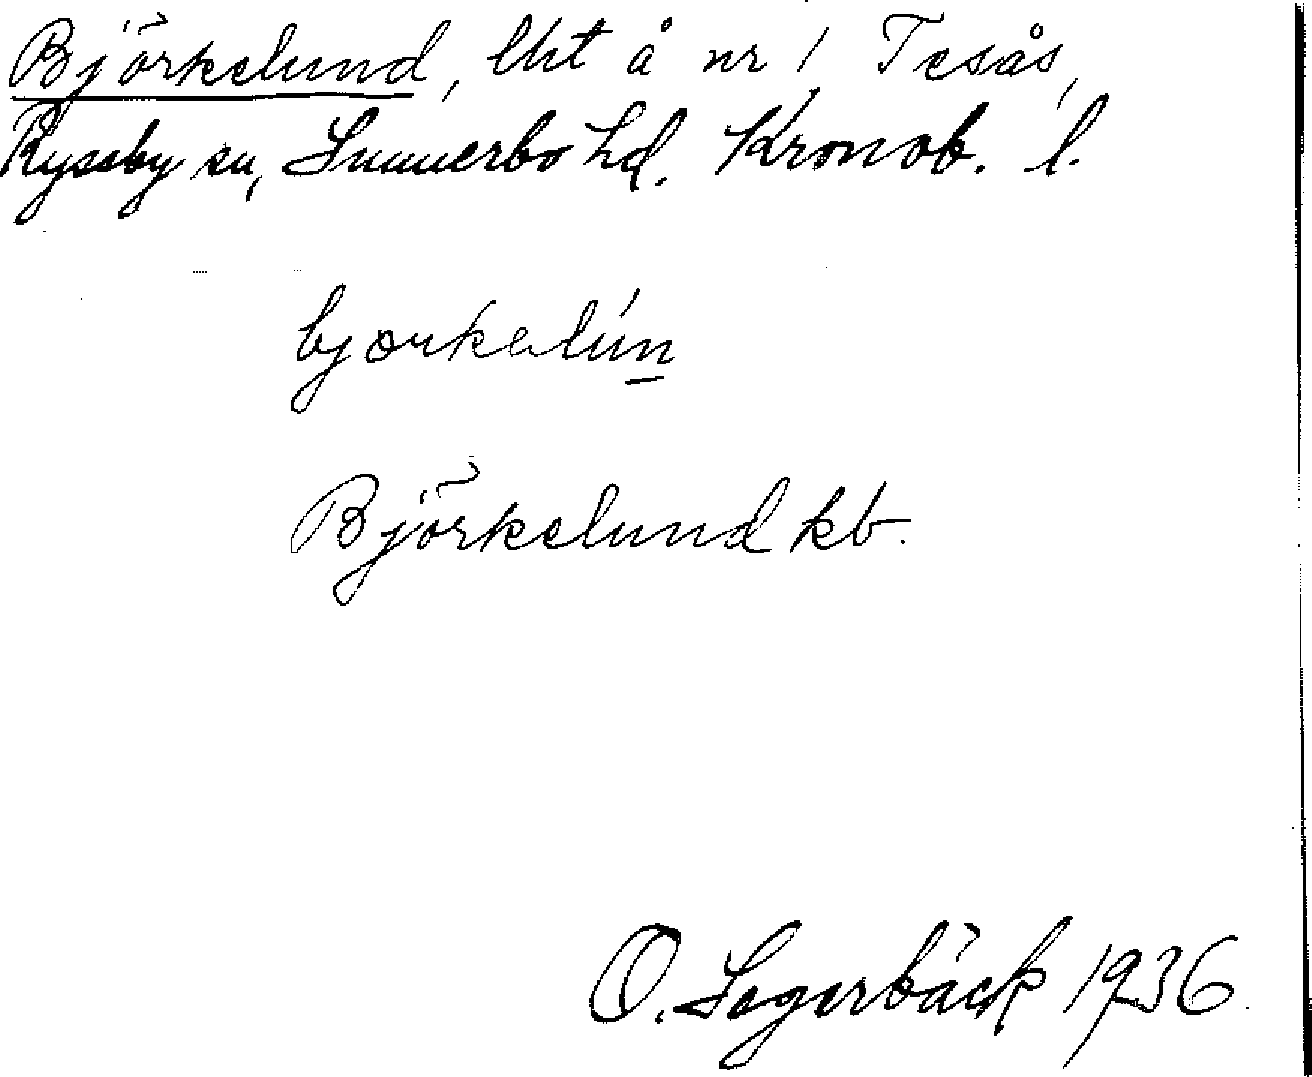 Björkelund, lht å nr 1 Tesås,
Ryssby sn, Sunnerbo hd. Kronob. l.
bjorkəlún
Björkelund kb.
O. Segerbäck 1936.